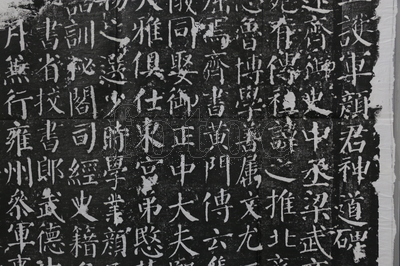 護軍顏君神道碑
遠齊御史中丞梁武帝
苑有傳祖諱之推北齊
思魯博學善屬文尤工
屈焉齊書黃門傳云集
儀同娶御正中大夫殷
大雅俱仕東宮弟愍
物之選少時學業顏
詁訓秘閣司經史籍
書省校書郎武德中
月兼行雍州參軍事